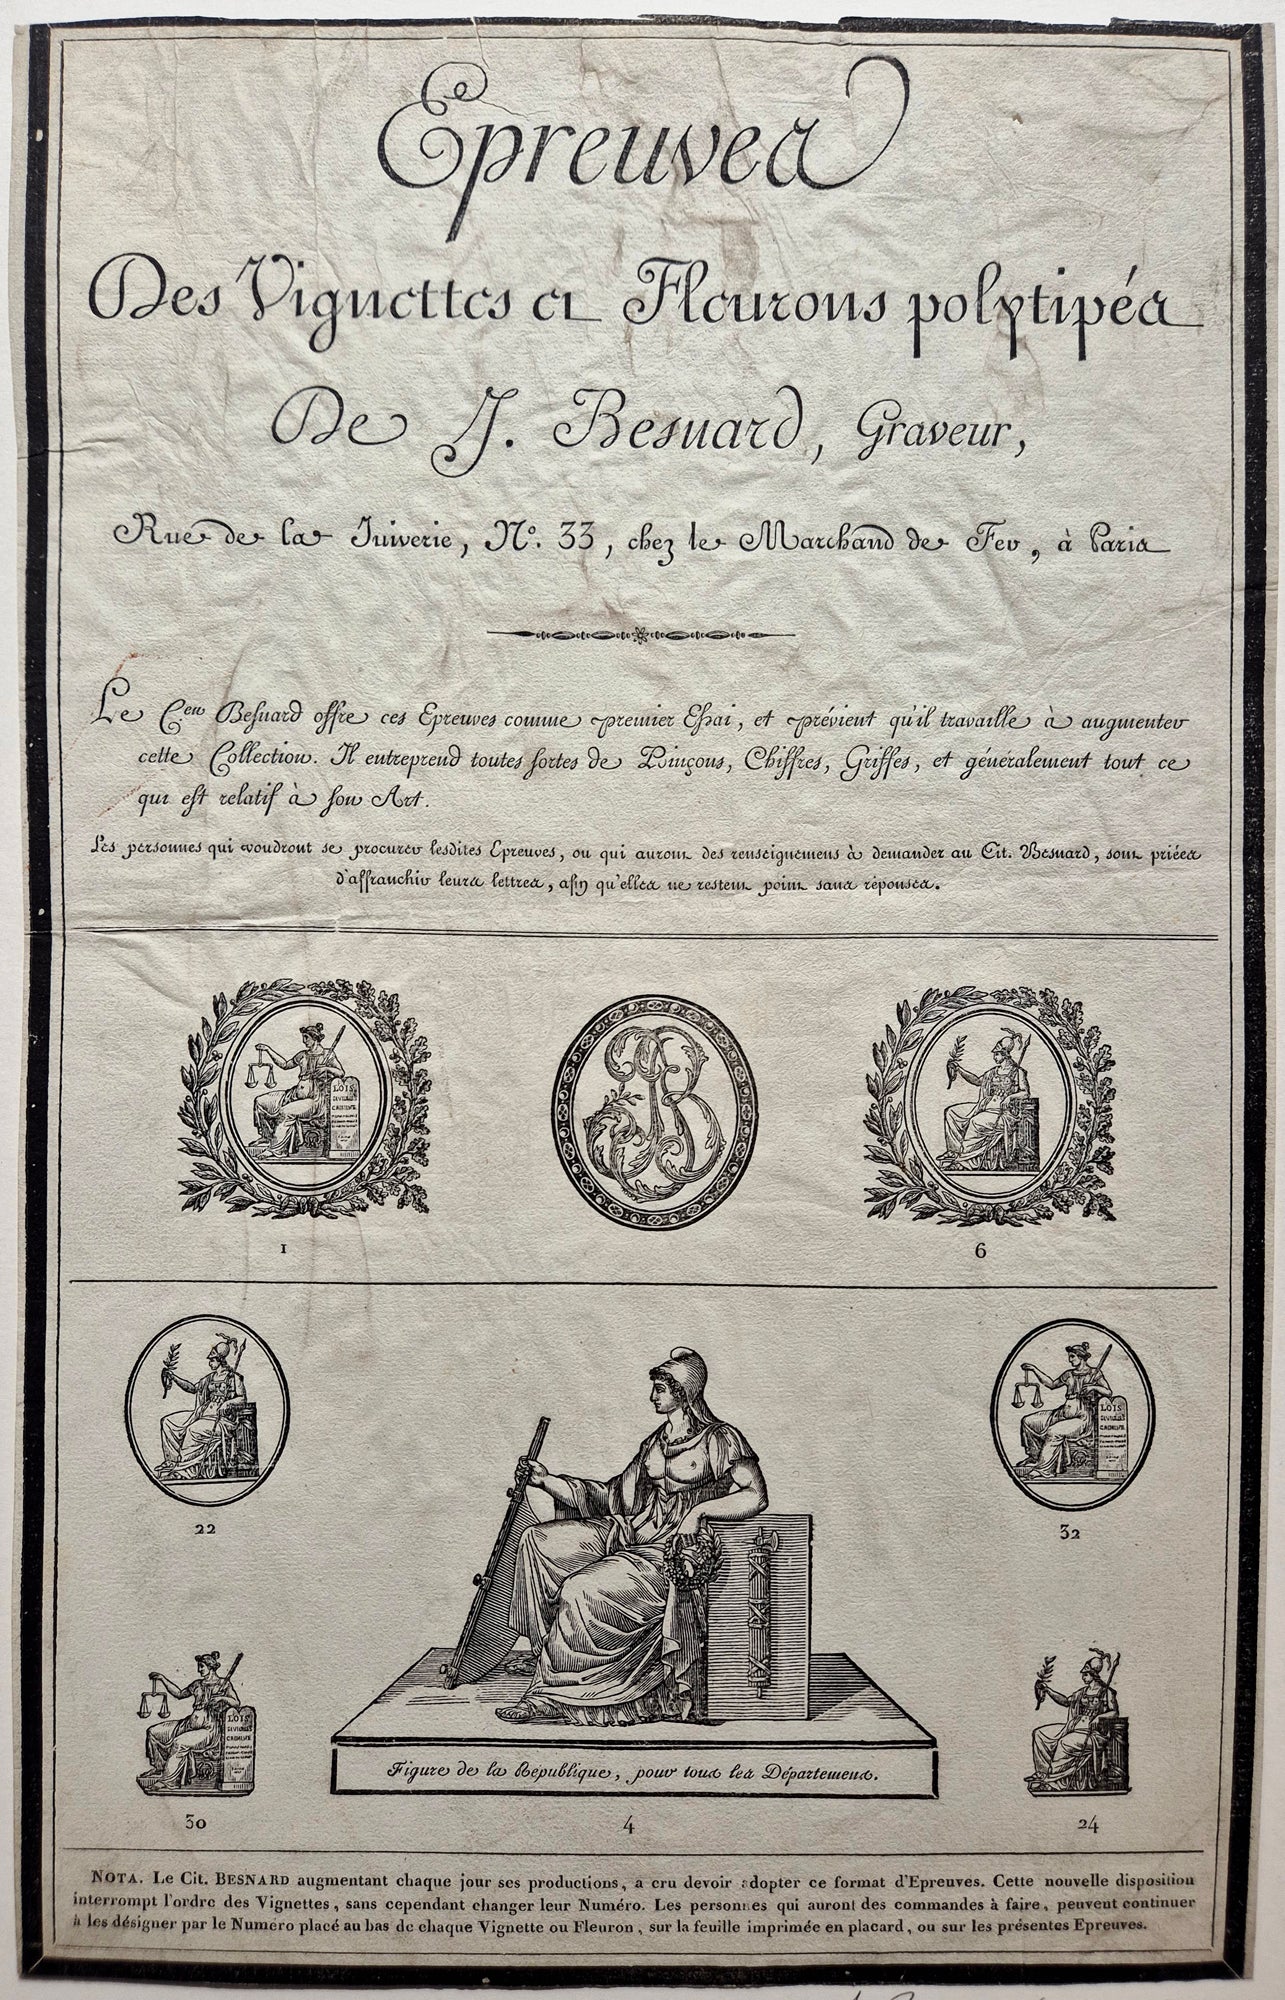 Epreuves
Des Vignettes et Fleurons polytipés
De J. Besnard, Graveur,
Rue de la Juiverie, N°. 33, chez le Marchand de Fer, à Paris
Le C.en Besnard offre ces Epreuves comme premier Essai, et prévient qu'il travaille à augmenter
cette Collection. Il entreprend toutes sortes de Poinçons, Chiffres, Griffes, et généralement tout ce
qui est relatif à son Art.
Les personnes qui voudront se procurer lesdites Epreuves, ou qui auront des renseignemens à demander au Cit. Besnard, sont priées
d'affranchir leurs lettres, afin qu'elles ne restent point sans réponses.
LOIS
CIVILES
CRIMINE
1
6
22
LOIS
CIVILES
CRIMINE
32
LOIS
CIVILES
CRIMINE
30
Figure de la Republique, pour tous les Départemens.
4
24
NOTA. Le Cit. BESNARD augmentant chaque jour ses productions, a cru devoir adopter ce format d'Epreuves. Cette nouvelle disposition
interrompt l'ordre des Vignettes, sans cependant changer leur Numéro. Les personnes qui auront des commandes à faire, peuvent continuer
à les désigner par le Numéro placé au bas de chaque Vignette ou Fleuron, sur la feuille imprimée en placard, ou sur les présentes Epreuves.